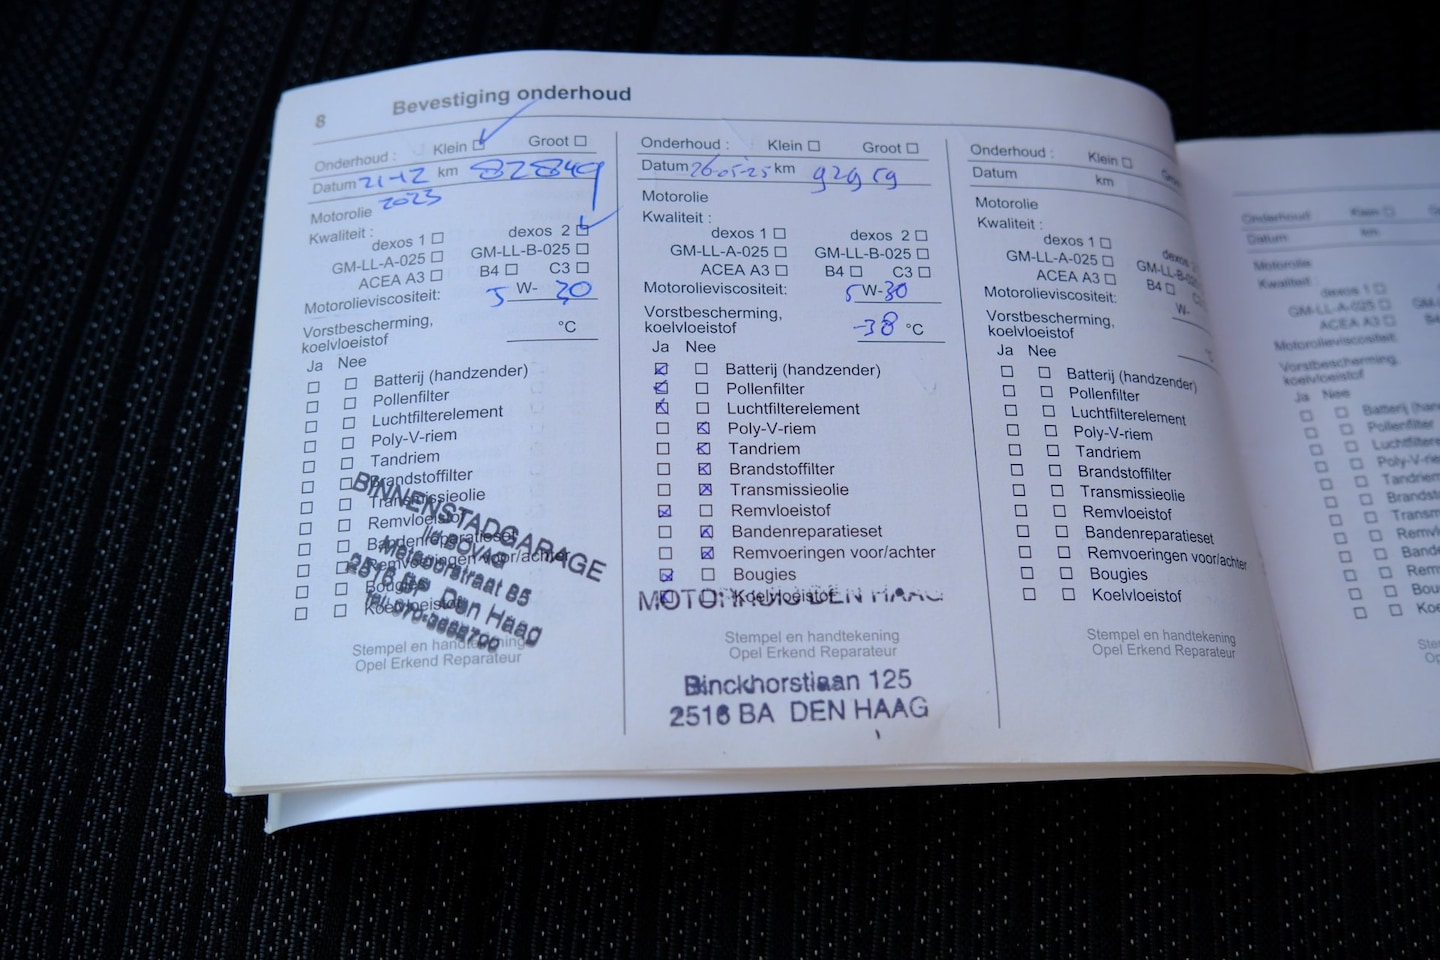 8 Bevestiging onderhoud
Onderhoud : Klein Groot
Datum 21-12 km 82849
2023
Motorolie
Kwaliteit :
dexos 1 dexos 2
GM-LL-A-025 GM-LL-B-025
ACEA A3 B4 C3
Motorolieviscositeit: 5 W- 30
Vorstbescherming,
koelvloeistof °C
Ja Nee
Batterij (handzender)
Pollenfilter
Luchtfilterelement
Poly-V-riem
Tandriem
Brandstoffilter
Transmissieolie
Remvloeistof
Bandenreparatieset
Remvoeringen voor/achter
Bougies
Koelvloeistof
BINNENSTADGARAGE
lid BOVAG
Meteoorstraat 85
Den Haag
Stempel en handtekening
Opel Erkend Reparateur
Onderhoud : Klein Groot
Datum 26-05-25 km
Motorolie
Kwaliteit :
dexos 1 dexos 2
GM-LL-A-025 GM-LL-B-025
ACEA A3 B4 C3
Motorolieviscositeit: 5 W-30
Vorstbescherming,
koelvloeistof -38 °C
Ja Nee
Batterij (handzender)
Pollenfilter
Luchtfilterelement
Poly-V-riem
Tandriem
Brandstoffilter
Transmissieolie
Remvloeistof
Bandenreparatieset
Remvoeringen voor/achter
Bougies
Koelvloeistof
DEN HAAG
Stempel en handtekening
Opel Erkend Reparateur
Binckhorstlaan 125
2516 BA DEN HAAG
Onderhoud : Klein
Datum km
Motorolie
Kwaliteit :
dexos 1 dexos
GM-LL-A-025 GM-LL-B-025
ACEA A3 B4
Motorolieviscositeit: W-
Vorstbescherming,
koelvloeistof
Ja Nee
Batterij (handzender)
Pollenfilter
Luchtfilterelement
Poly-V-riem
Tandriem
Brandstoffilter
Transmissieolie
Remvloeistof
Bandenreparatieset
Remvoeringen voor/achter
Bougies
Koelvloeistof
Stempel en handtekening
Opel Erkend Reparateur
Onderhoud : Klein
Datum km
Motorolie
Kwaliteit :
dexos 1
GM-LL-A-025
ACEA A3
Motorolieviscositeit:
Vorstbescherming,
koelvloeistof
Ja Nee